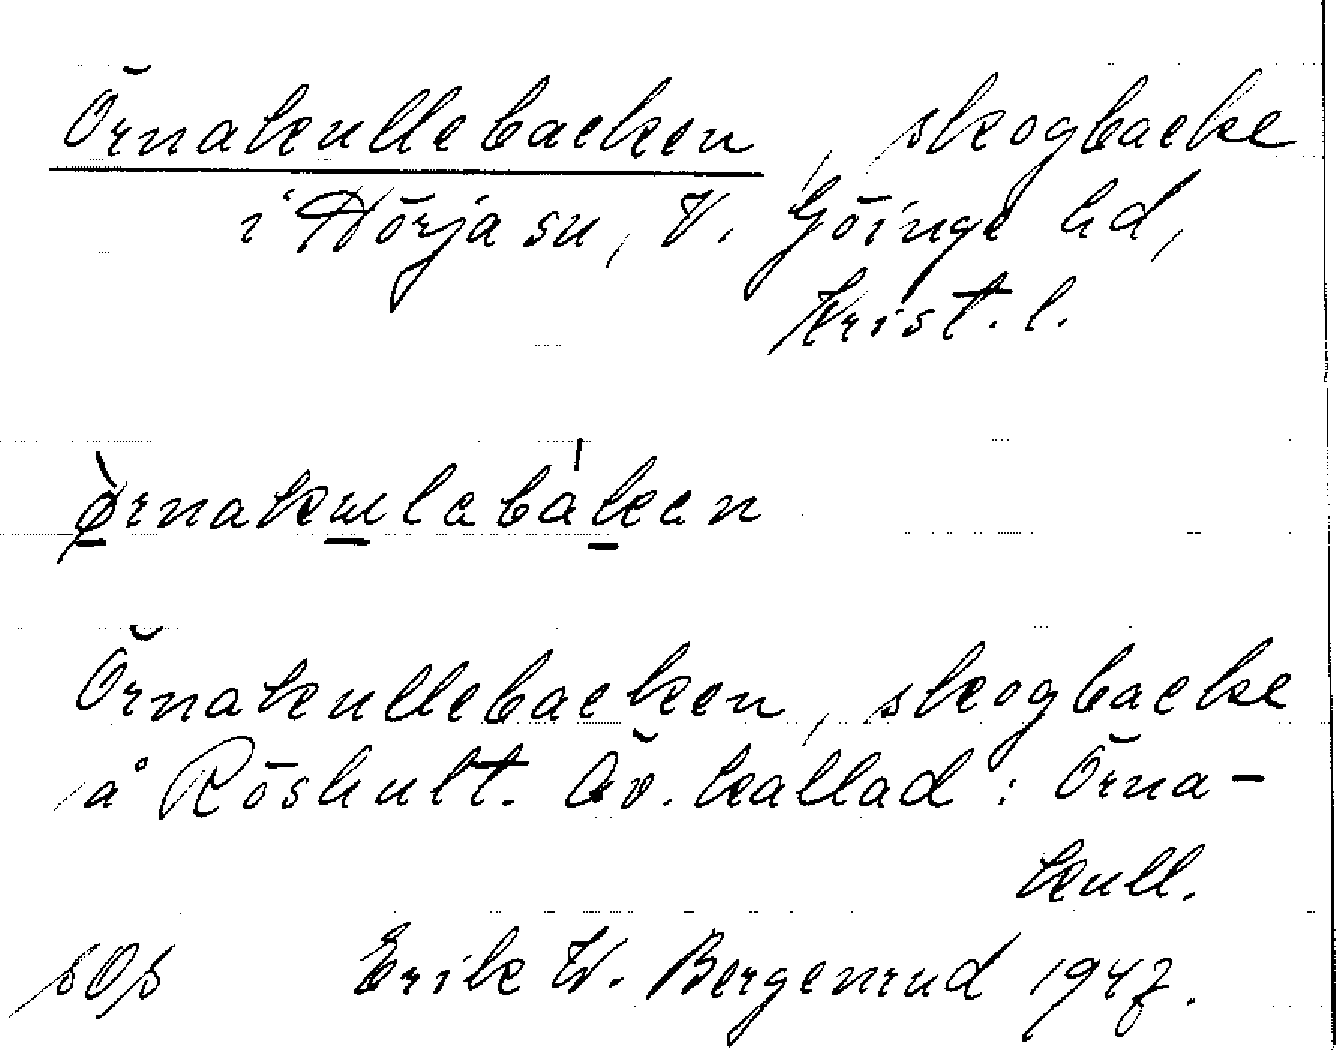 Örnakullebacken, skogbacke
i Hörja sn, V. Göinge hd,
Krist. l.
ø̀rnakulebáken
Örnakullebacken, skogbacke
å Röshult. Äv. kallad: Örna-
kull.
sOs Erik W. Bergenrud 1947.